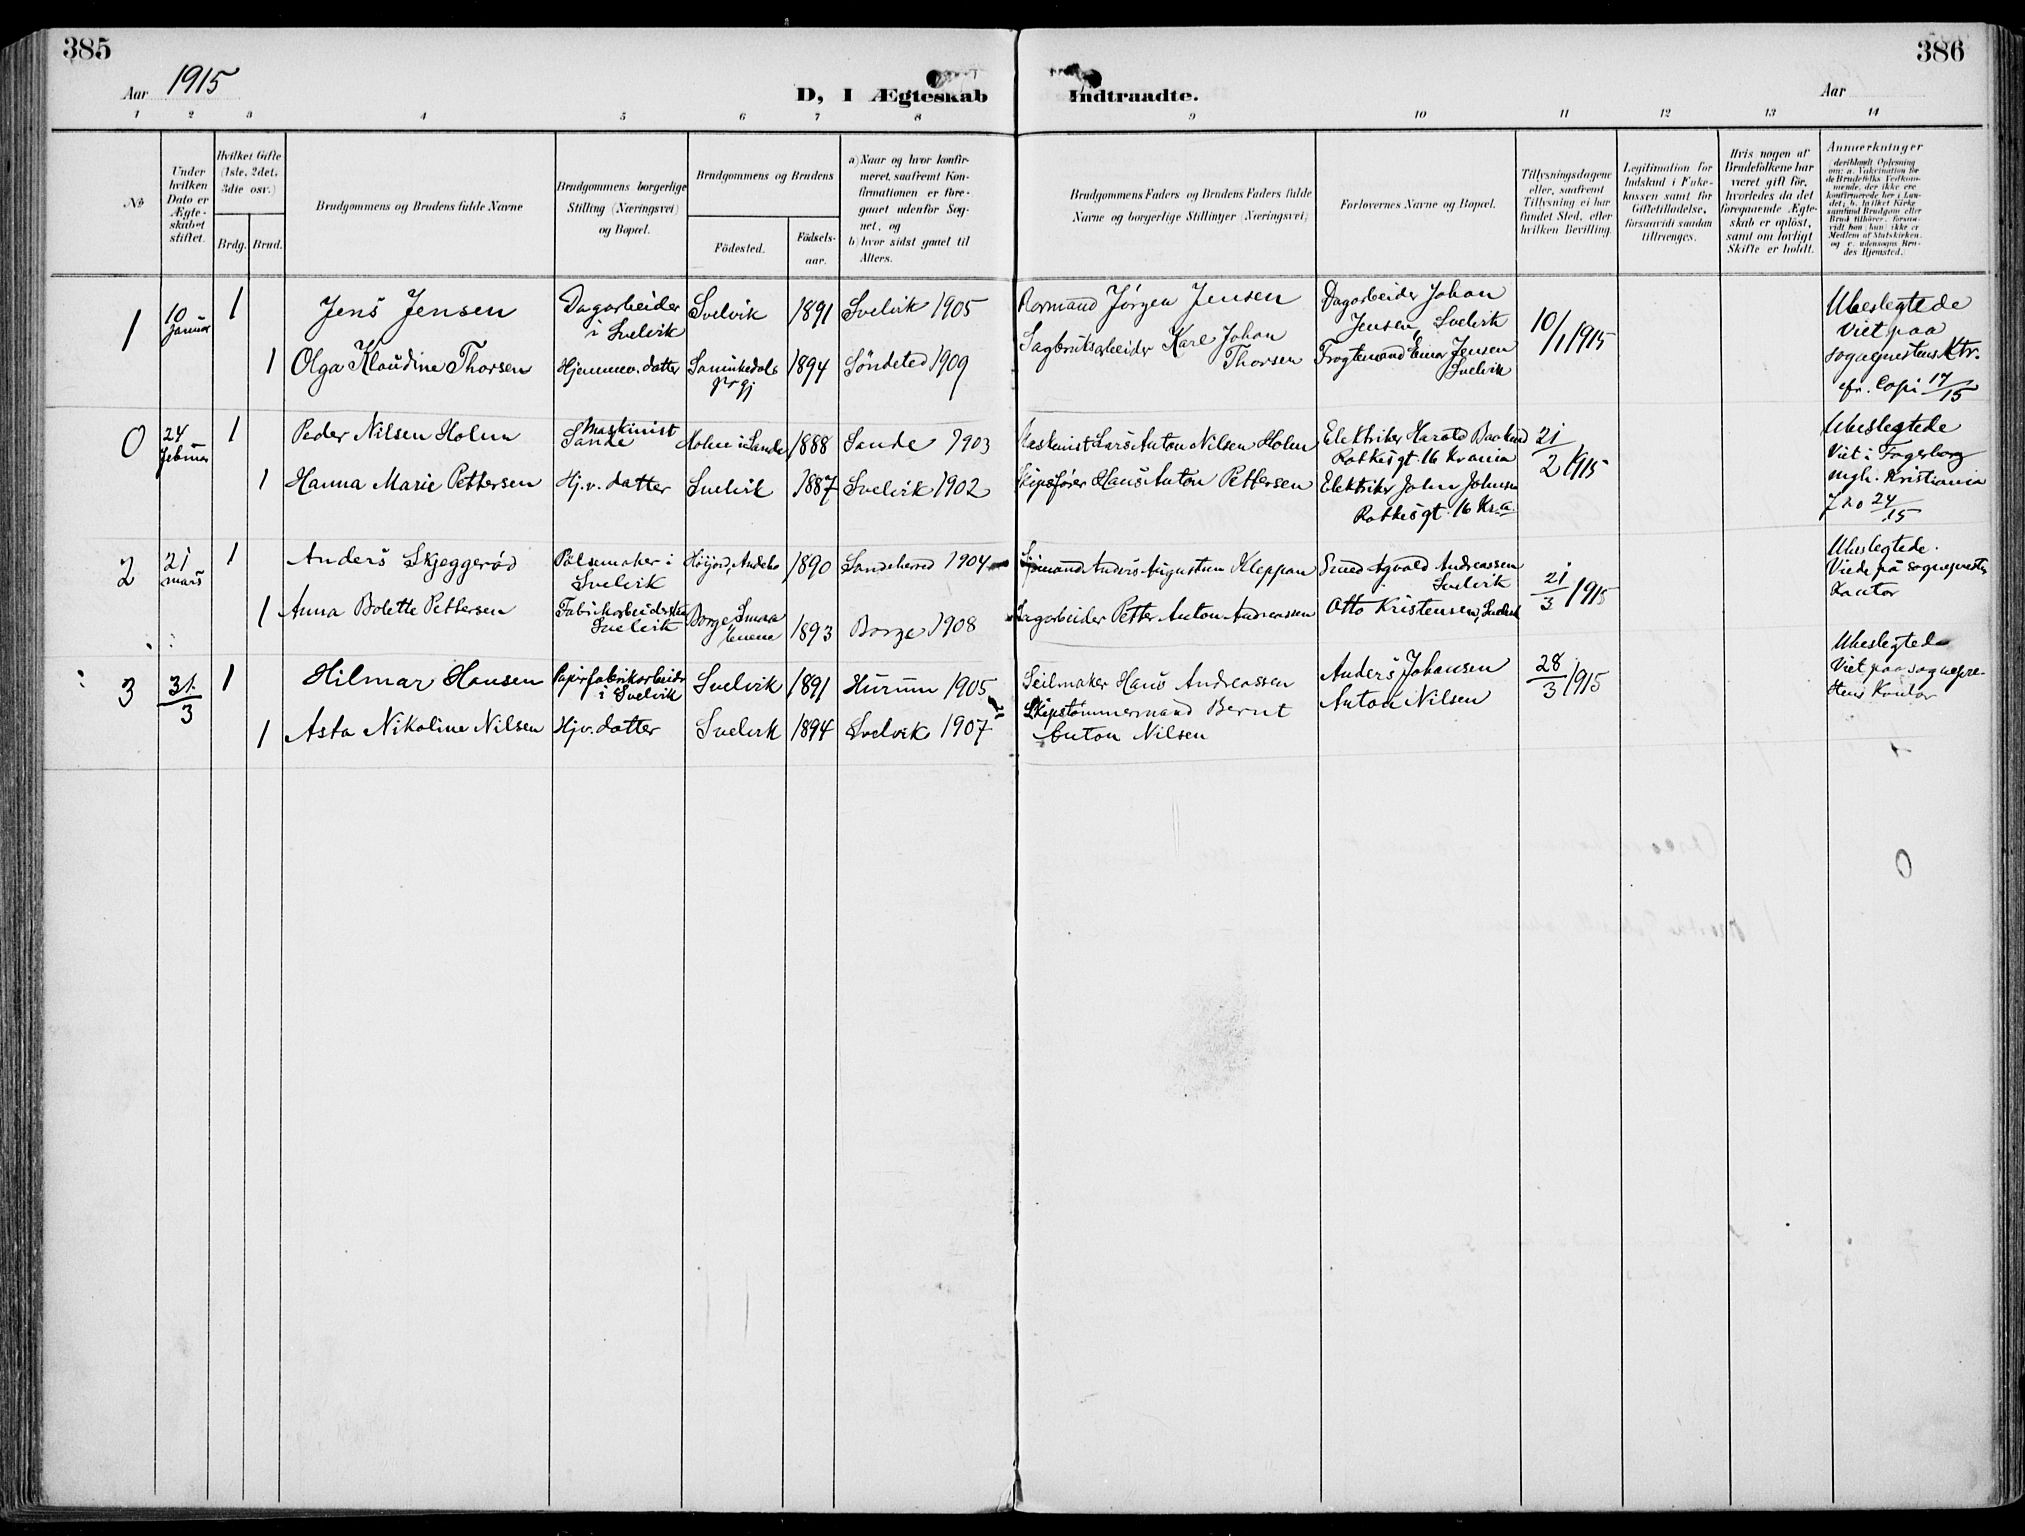 385
386
Aar 1915
D, I Ægteskab Indtraadte.
Aar
1 2 3 4 5 6 7 8 9 10 11 12 13 14
No
Under hvilken Dato er Ægteskabet stiftet.
Hvilket Gifte (1ste, 2det, 3die osv.)
Brdg. Brud.
Brudgommens og Brudens fulde Navne
Brudgommens borgerlige Stilling (Næringsvei) og Bopæl.
Brudgommens og Brudens
Födested.
Födsels-aar.
a) Naar og hvor konfirmeret, saafremt Konfirmationen er foregaaet udenfor Sognet, og
b) hvor sidst gaaet til Alters.
Brudgommens Faders og Brudens Faders fulde Navne og borgerlige Stillinger (Næringsvei)
Forlovernes Navne og Bopæl.
Tillysningsdagene eller, saafremt Tillysning ei har fundet Sted, efter hvilken Bevilling.
Legitimation for Indskud i Enkekassen samt for Giftetilladelse, forsaavidt saadan tiltrænges.
Hvis nogen af Brudefolkene har været gift för, hvorledes da det foregaaende Ægteskab er oplöst, samt om lovligt Skifte er holdt.
Anmærkninger
1 10 Januar 1 Jens Jensen Dagarbeider i Svelvik Svelvik 1891 Svelvik 1905 Jørgen Jensen Dagarbeider Johan Jensen, Svelvik 10/1 1915 Ubeslegtede
Viet paa
sogneprestens Ktr.
cfr. Copi 17/15
1 Olga Klaudine Thorsen Hjemmev. datter 1894 Søndeled 1909 Sagbruksarbeider Karl Johan Thorsen Einar Jensen Svelvik
0 24 Februar 1 Peder Nilsen Holm Maskinist Sande Holm i Sande 1888 Sande 1903 Maskinist Lars Anton Nilsen Holm Elektriker Harald 16 Krania 21/2 1915 Ubeslegtede
Viet i Fagerborg
mgh. Kristiania
24/15
1 Hanna Marie Pettersen Hj.v. datter Svelvik 1887 Svelvik 1902 Skipsfører Hans Anton Pettersen Elektriker John Johnsen 16 Kr.a.
2 21 mars 1 Anders Skjeggerød Pölsemaker i Svelvik Höijord, Andebu 1890 Sandeherred 1904 Sjømand Anders Augustsen Kleppan Smed Agvald Andreassen Svelvik 21/3 1915 Ubeslegtede.
Viede på sogneprestens
Kontor
1 Anna Bolette Pettersen Fabrikarbeiderske Svelvik Borge, 1893 Borge 1908 Dagarbeider Petter Anton Andreassen Otto Kristensen, Svelvik
3 31/3 1 Hilmar Hansen Papirfabrikarbeider i Svelvik Svelvik 1891 Hurum 1905 Seilmaker Hans Andreassen Anders Johansen 28/3 1915 Ubeslegtede
Viet paa sognepre-
stens Kontor
1 Asta Nikoline Nilsen Hjv. datter Svelvik 1894 Svelvik 1907 Skipstømmermand Bernt Anton Nilsen Anton Nilsen